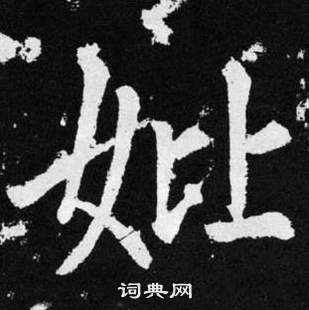 妣
词典网